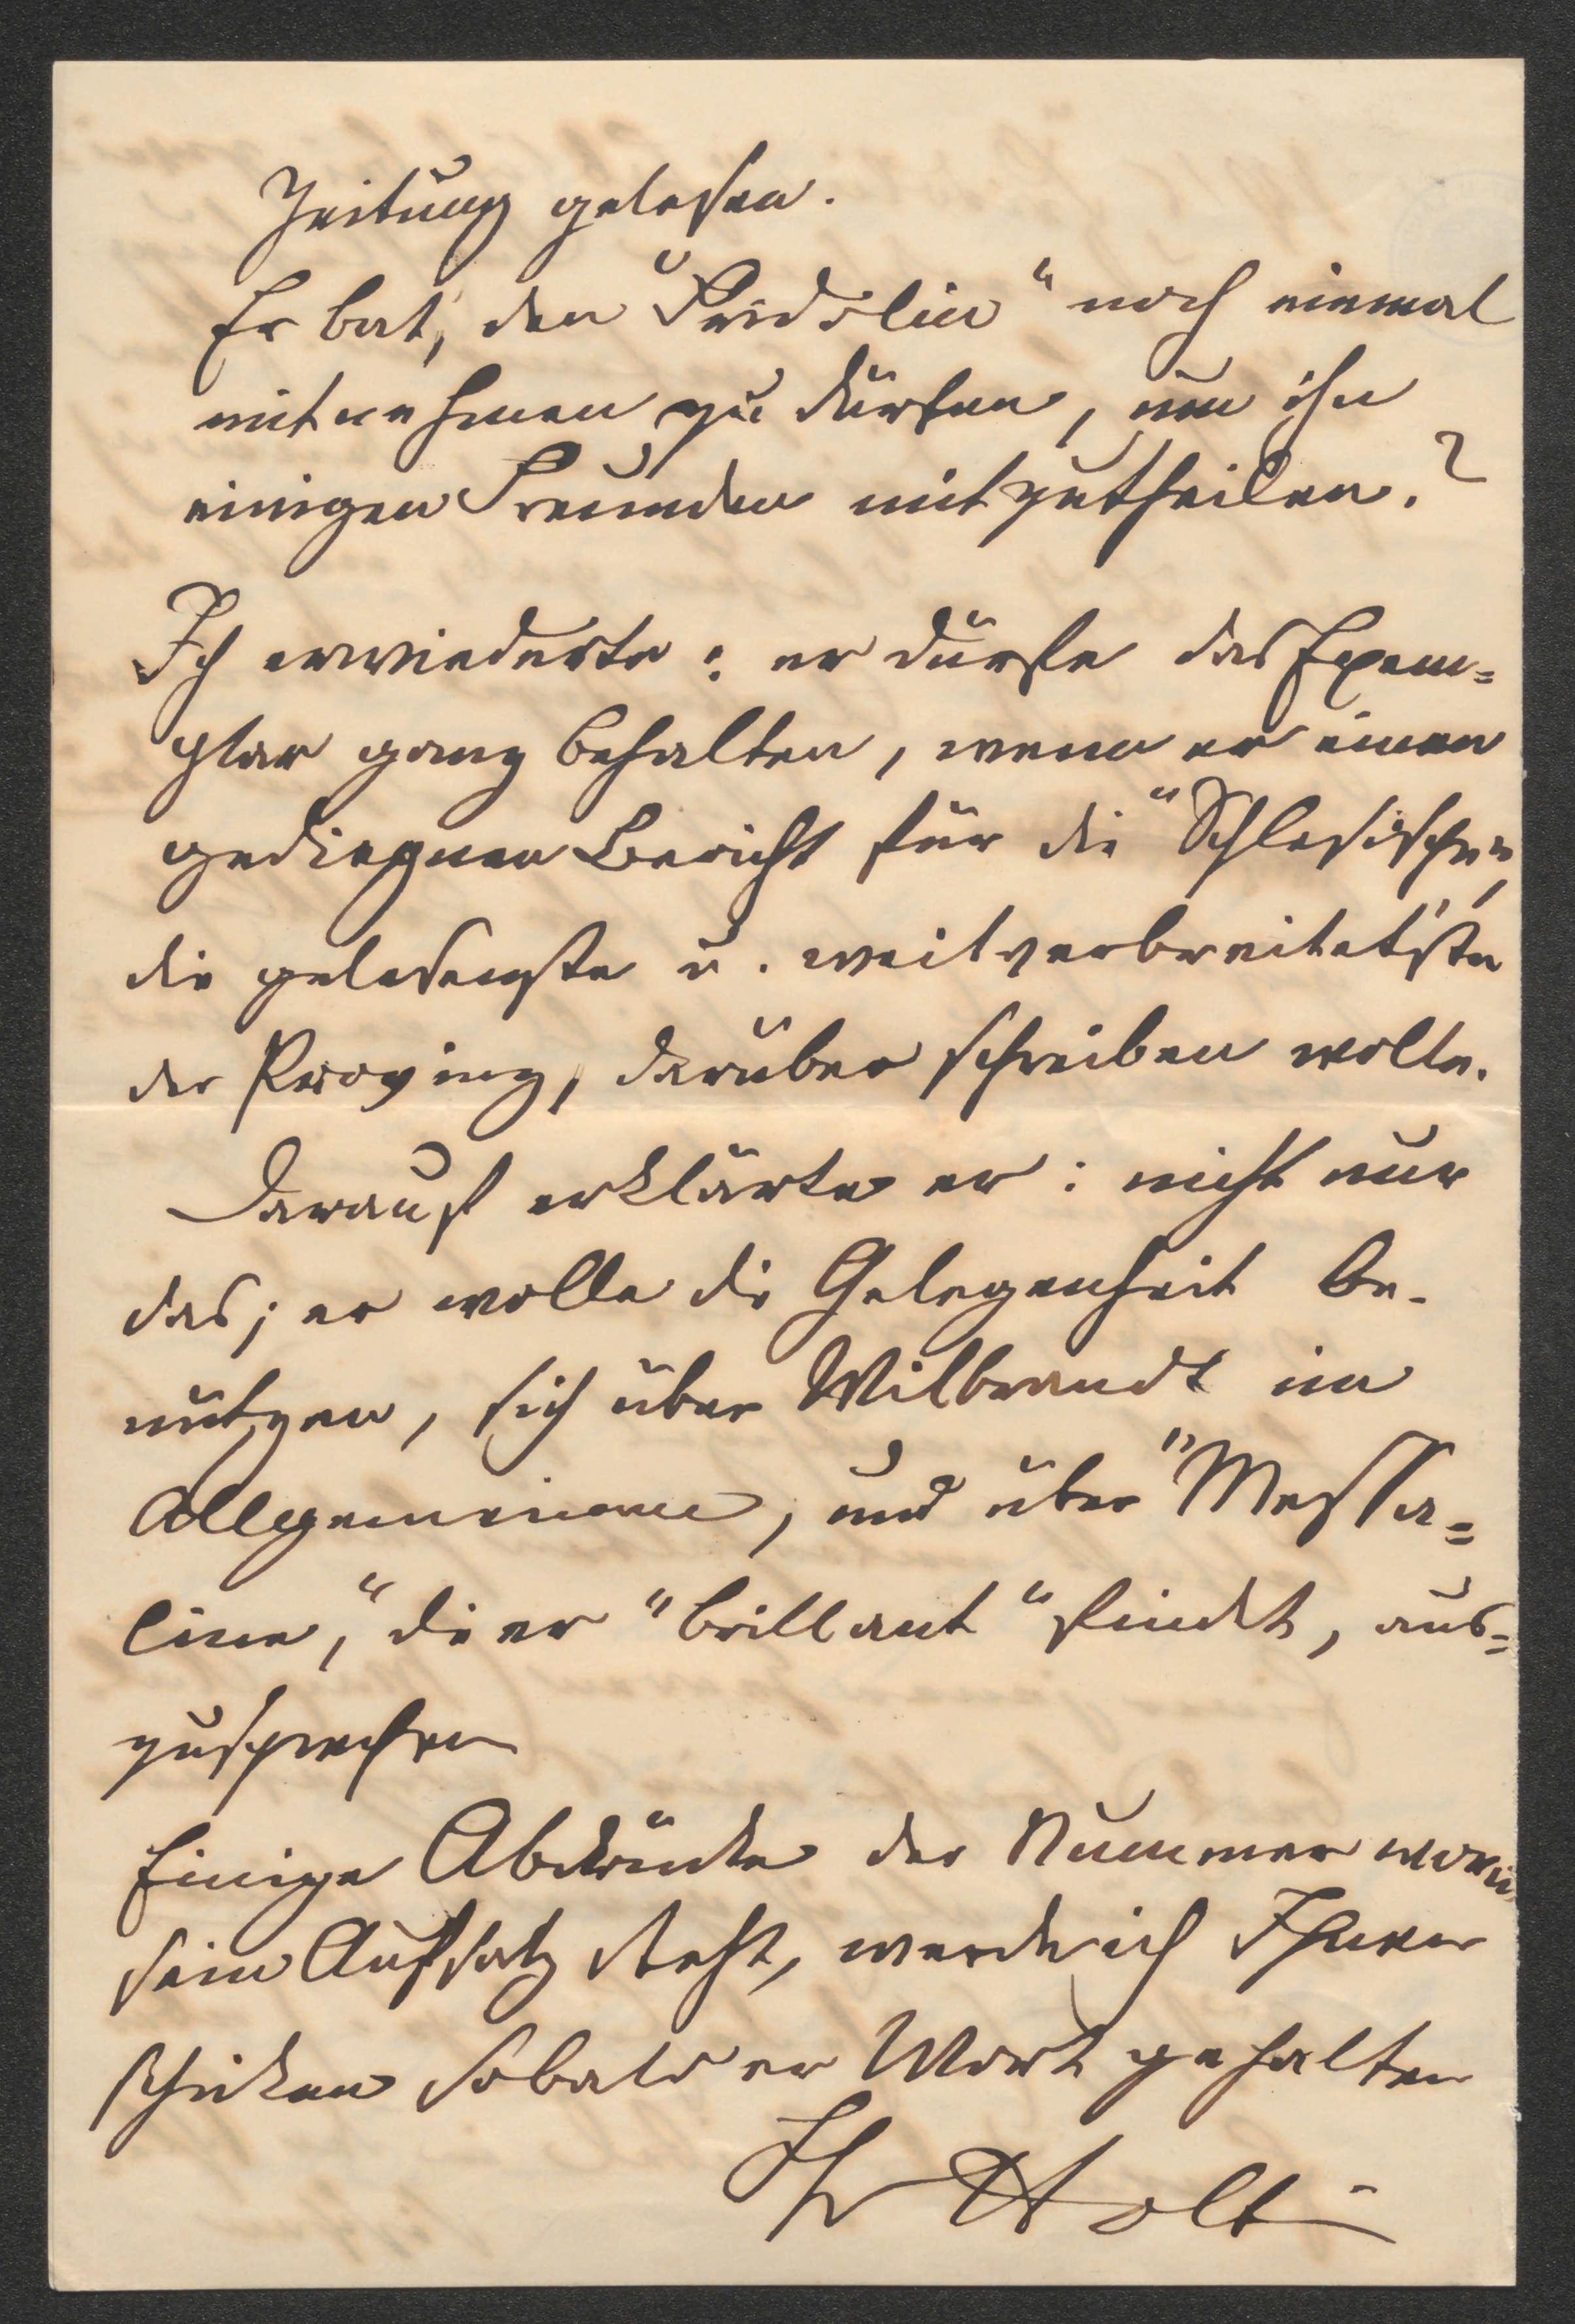 Zeitung gelesen.
Er bat, den "Fridolin" noch einmal
mitnehmen zu dürfen, um ihn
einigen Freunden mitzutheilen.?
Ich erwiederte: er dürfe das Exem=
plar ganz behalten, wenn er einen
gediegnen Bericht für die "Schlesische",
die gelesenste u. weitverbreitetste
der Provinz, darüber schreiben wolle.
Darauf erklärte er: nicht nur
das; er wolle die Gelegenheit be-
nützen, sich über Wilbrandt im
Allgemeinen, und über "Messa=
line," die er "brillant" findet, aus=
zusprechen
Einige Abdrücke der Nummer worin
sein Aufsatz steht, werde ich Ihnen
schicken sobald er Wort gehalten
Ihr Holtei